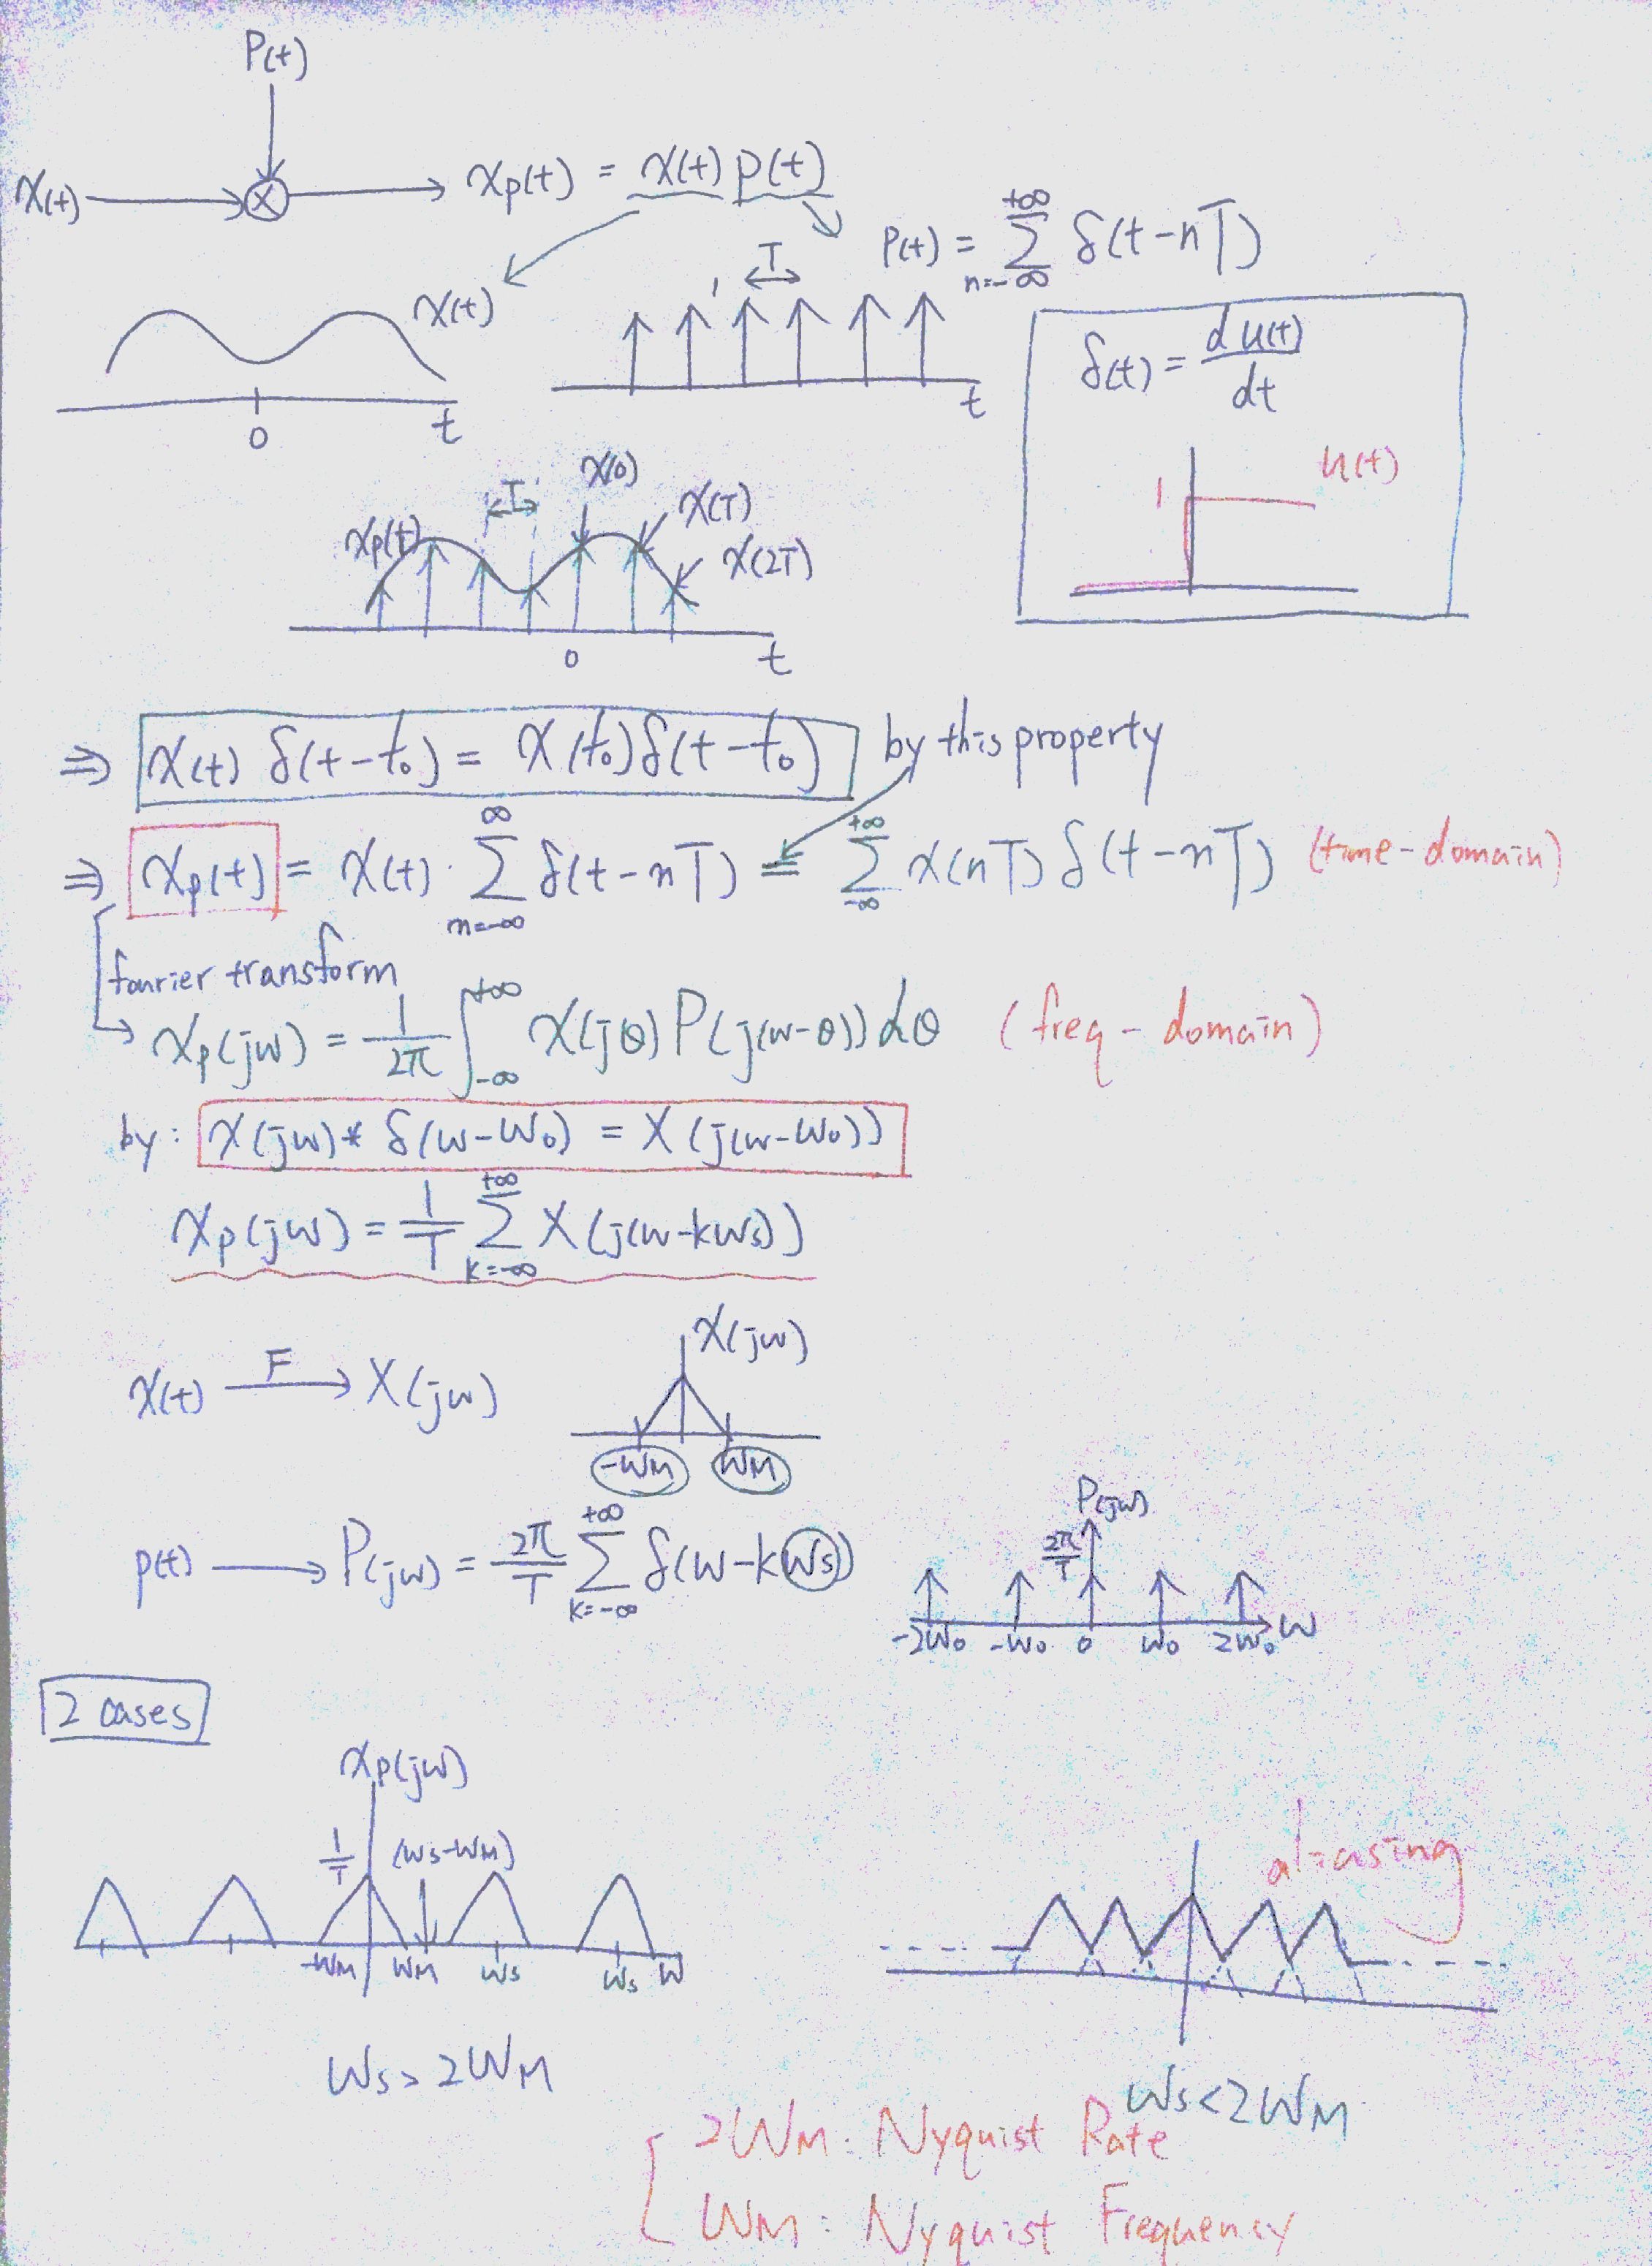 P(t)
x(t) → ⊗ → xp(t) = x(t) p(t)
P(t) = Σ_{n=-∞}^{+∞} δ(t-nT)
x(t)
0
t
1
T
t
δ(t) = du(t)/dt
1
u(t)
xp(t)
T
x(0)
x(T)
x(2T)
0
t
⇒ x(t) δ(t-t₀) = x(t₀) δ(t-t₀) by this property
⇒ xp(t) = x(t) · Σ_{n=-∞}^{∞} δ(t-nT) = Σ_{-∞}^{+∞} x(nT) δ(t-nT) (time-domain)
fourier transform
Xp(jw) = 1/2π ∫_{-∞}^{+∞} X(jθ) P(j(w-θ)) dθ (freq-domain)
by: X(jw) * δ(w-w₀) = X(j(w-w₀))
Xp(jw) = 1/T Σ_{k=-∞}^{+∞} X(j(w-kws))
x(t) F→ X(jw)
X(jw)
-WM WM
p(t) → P(jw) = 2π/T Σ_{k=-∞}^{+∞} δ(w-kws)
P(jw)
2π/T
-2w₀ -w₀ 0 w₀ 2w₀ w
2 cases
Xp(jw)
1/T (ws-wM)
-wM wM ws ws w
ws > 2wM
aliasing
ws < 2wM
2WM: Nyquist Rate
WM: Nyquist Frequency